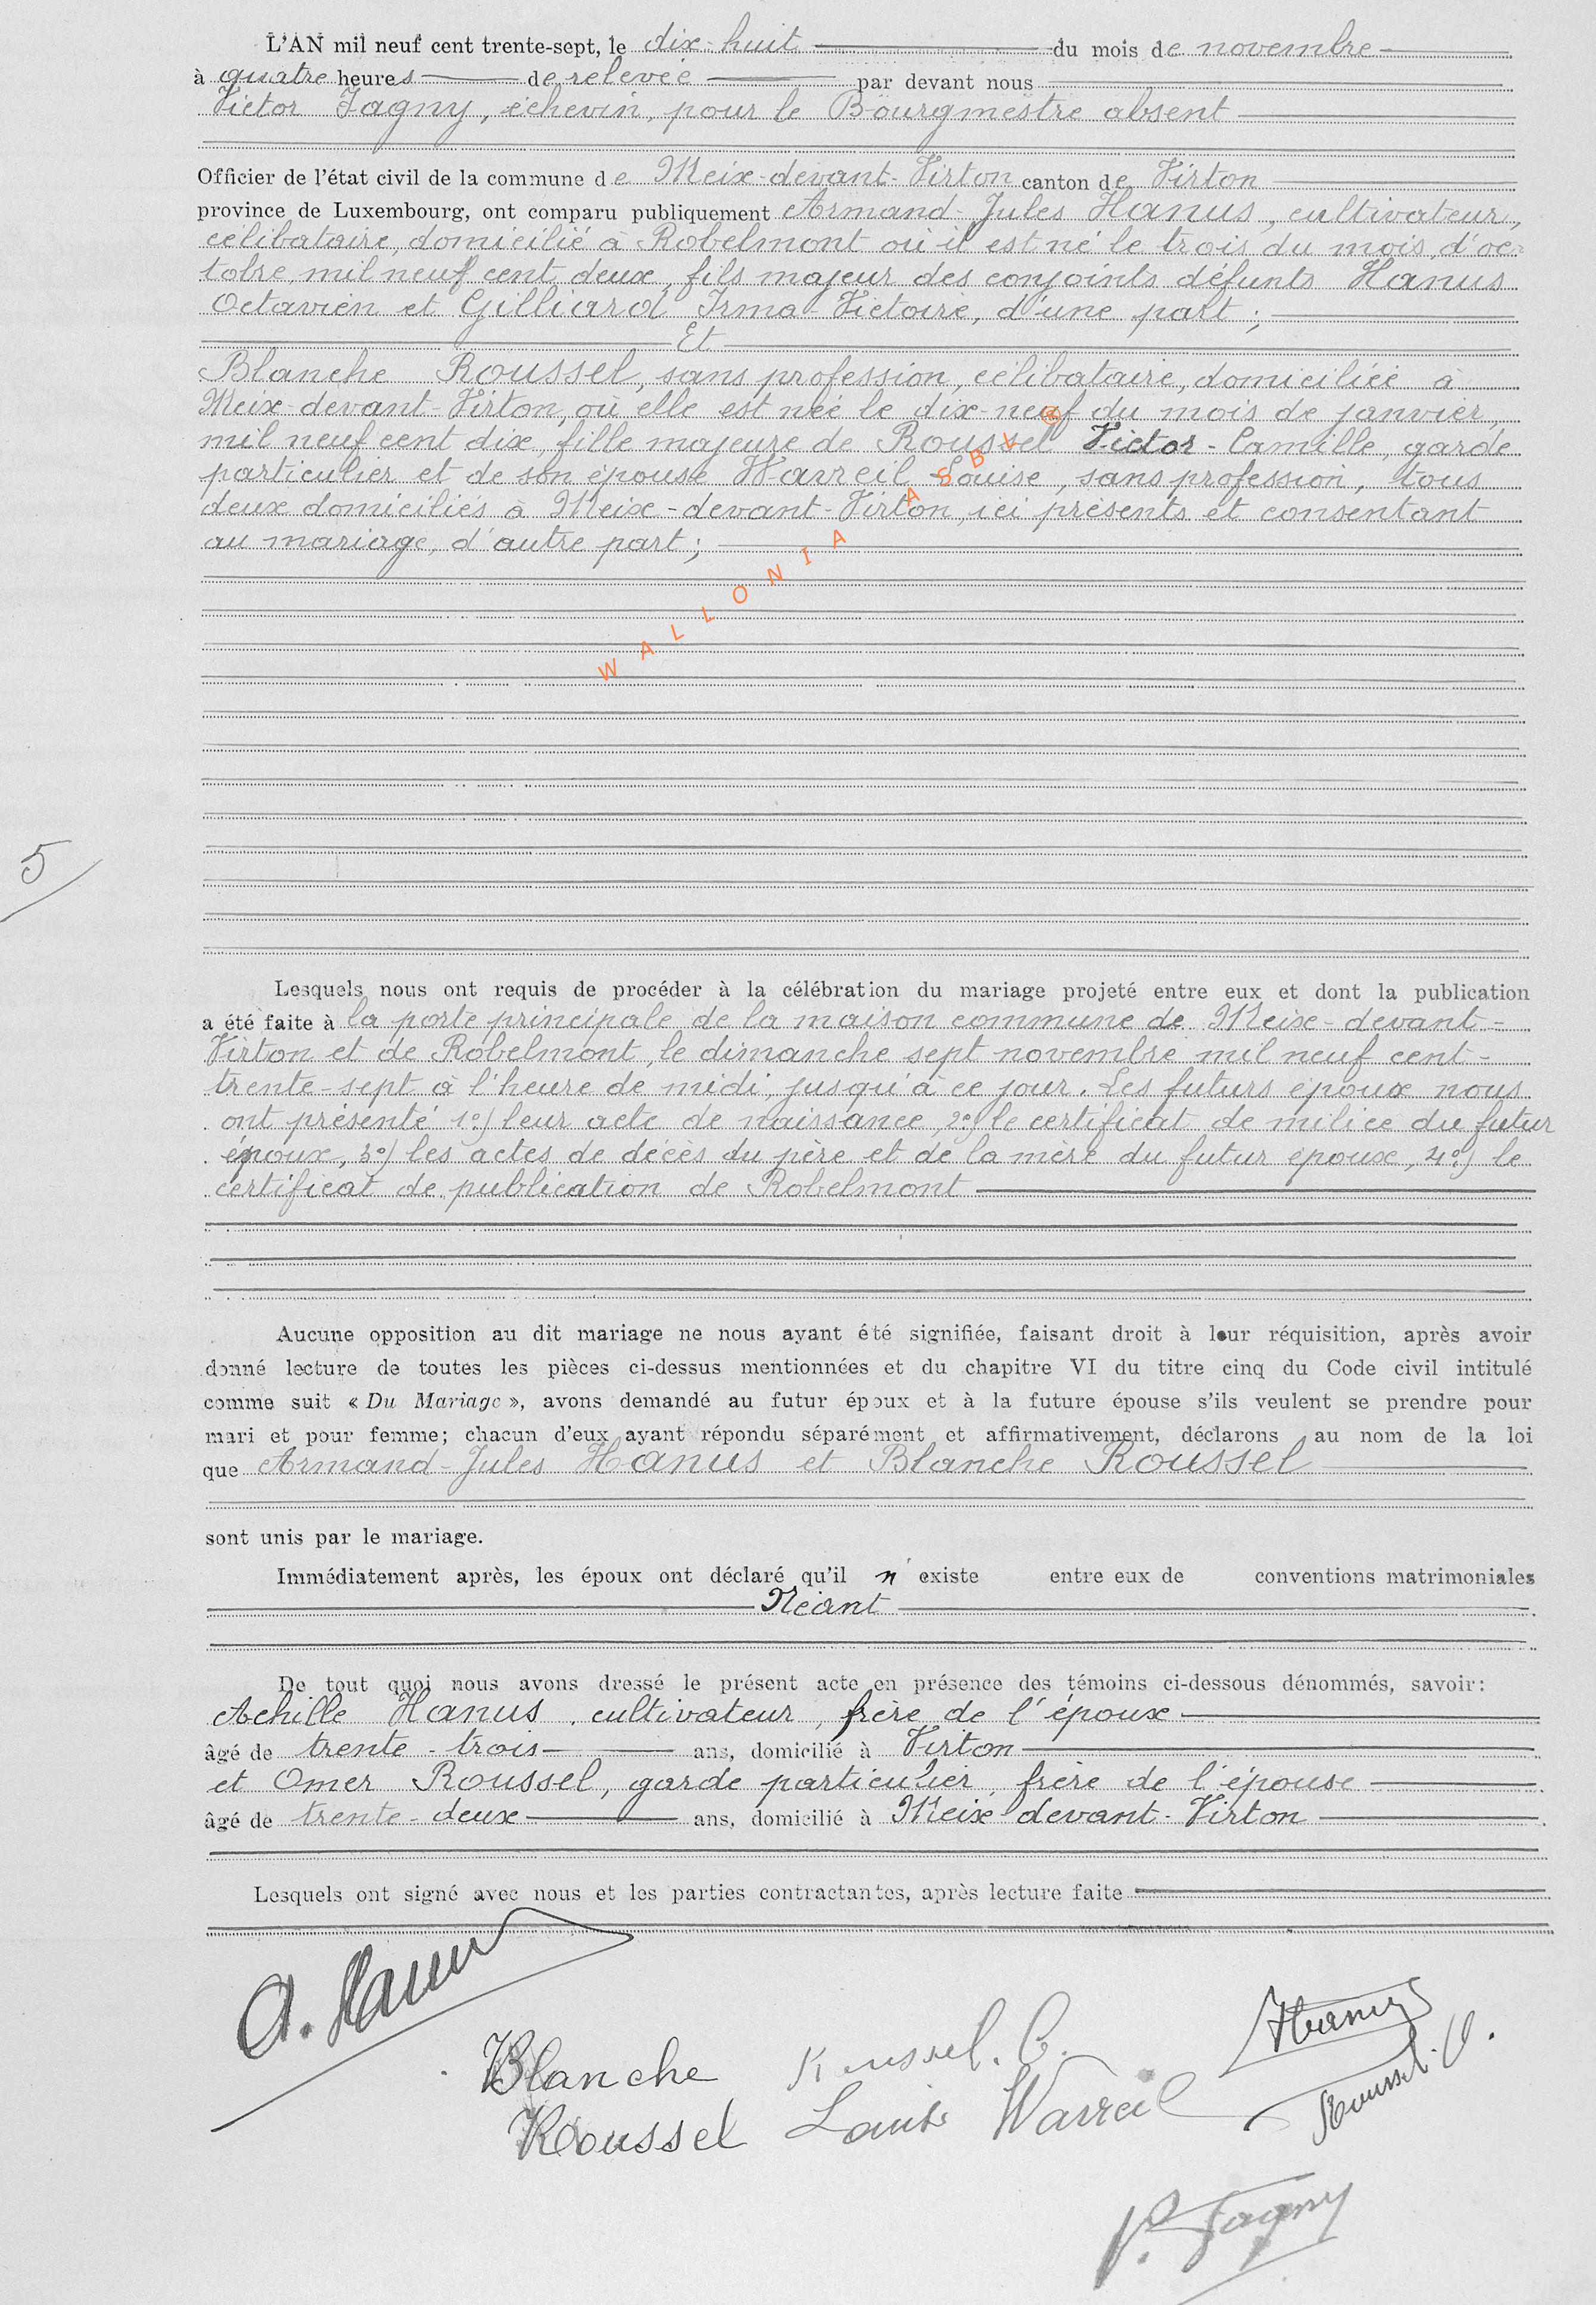 L'AN mil neuf cent trente-sept, le dix-huit du mois de novembre
à quatre heures de relevée par devant nous
Victor Fagny, échevin, pour le Bourgmestre absent
Officier de l'état civil de la commune de Meix-devant-Virton canton de Virton
province de Luxembourg, ont comparu publiquement Armand-Jules Hanus, cultivateur,
célibataire, domicilié à Robelmont où il est né le trois du mois d'oc-
tobre mil neuf cent deux, fils majeur des conjoints défunts Hanus
Octavien et Gilliard Irma-Victoire, d'une part;
Et
Blanche Roussel, sans profession, célibataire, domiciliée à
Meix-devant-Virton, où elle est née le dix-neuf du mois de janvier,
mil neuf cent dix, fille majeure de Roussel Victor-Camille, garde
particulier et de son épouse Warreil Louise, sans profession, tous
deux domiciliés à Meix-devant-Virton, ici présents et consentant
au mariage, d'autre part;
WALLONIA ASBL ®
5
Lesquels nous ont requis de procéder à la célébration du mariage projeté entre eux et dont la publication
a été faite à la porte principale de la maison commune de Meix-devant-
Virton et de Robelmont, le dimanche sept novembre mil neuf cent-
trente-sept à l'heure de midi, jusqu'à ce jour. Les futurs époux nous
ont présenté 1°) leur acte de naissance, 2°) le certificat de milice du futur
époux, 3°) les actes de décès du père et de la mère du futur époux, 4°) le
certificat de publication de Robelmont
Aucune opposition au dit mariage ne nous ayant été signifiée, faisant droit à leur réquisition, après avoir
donné lecture de toutes les pièces ci-dessus mentionnées et du chapitre VI du titre cinq du Code civil intitulé
comme suit « Du Mariage », avons demandé au futur époux et à la future épouse s'ils veulent se prendre pour
mari et pour femme; chacun d'eux ayant répondu séparément et affirmativement, déclarons au nom de la loi
que Armand-Jules Hanus et Blanche Roussel
sont unis par le mariage.
Immédiatement après, les époux ont déclaré qu'il n'existe entre eux de conventions matrimoniales
Néant
De tout quoi nous avons dressé le présent acte en présence des témoins ci-dessous dénommés, savoir:
Achille Hanus, cultivateur, frère de l'époux
âgé de trente-trois ans, domicilié à Virton
et Omer Roussel, garde particulier, frère de l'épouse
âgé de trente-deux ans, domicilié à Meix devant-Virton
Lesquels ont signé avec nous et les parties contractantes, après lecture faite
A. Hanus
Hanus
Blanche Roussel. C.
Roussel. O.
Roussel Louise Warreil
V. Fagny